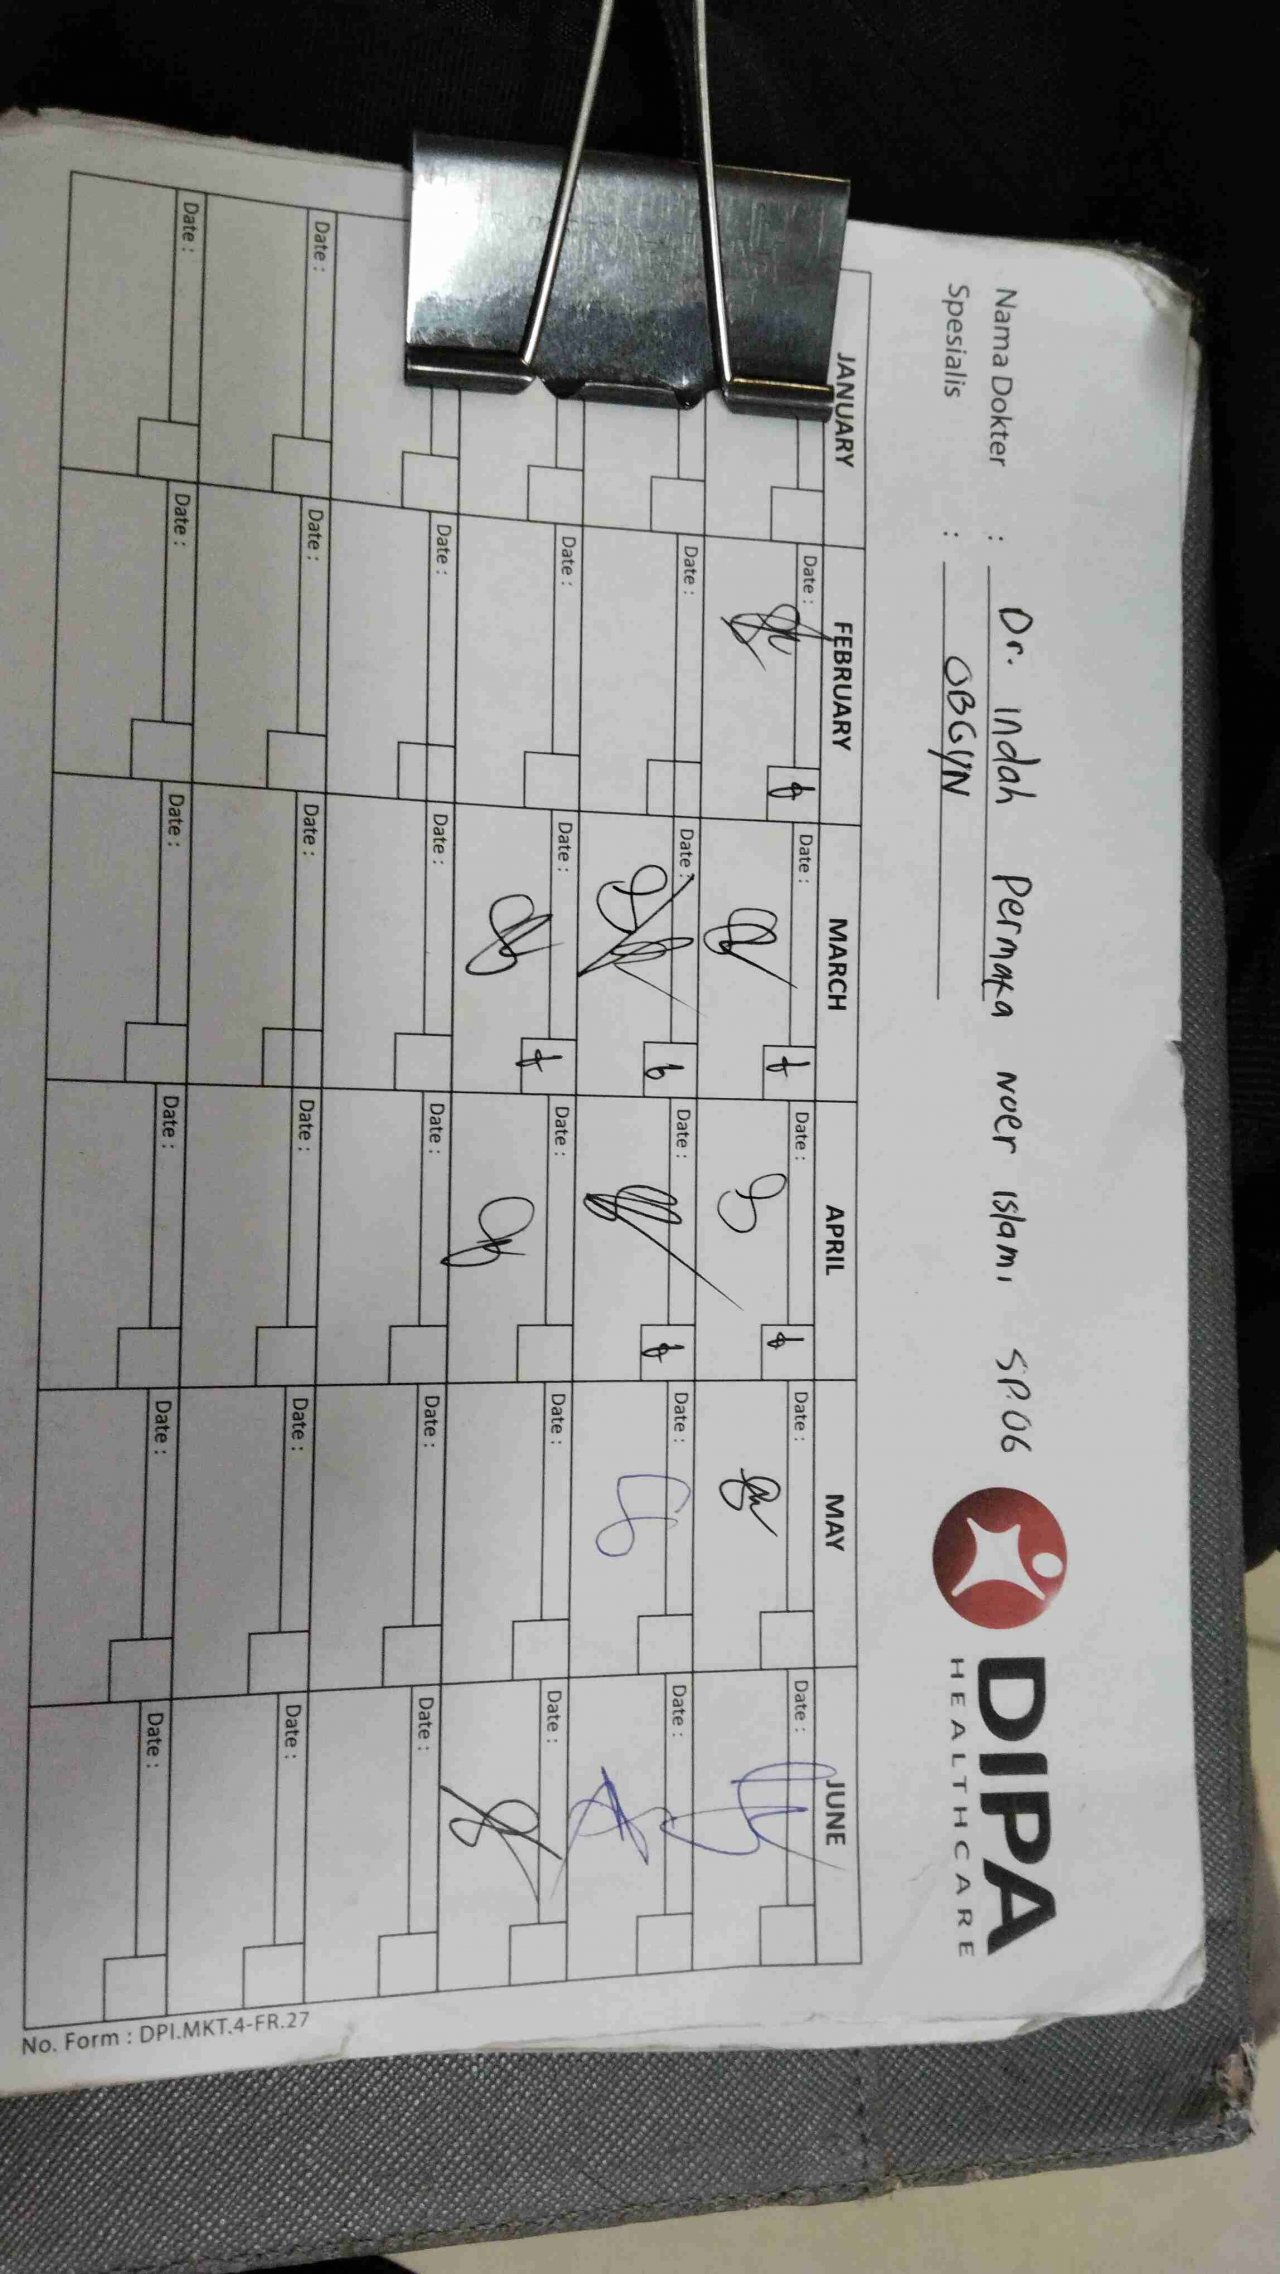 Nama Dokter : Dr. Indah Permata Noer Islami SP.OG
Spesialis : OBGYN
DIPA
HEALTHCARE
JANUARY FEBRUARY MARCH APRIL MAY JUNE
Date : Date : Date : Date : Date :
Date : Date : Date : Date : Date :
Date : Date : Date : Date : Date :
Date : Date : Date : Date : Date :
Date : Date : Date : Date : Date : Date :
Date : Date : Date : Date : Date : Date :
No. Form : DPI.MKT.4-FR.27